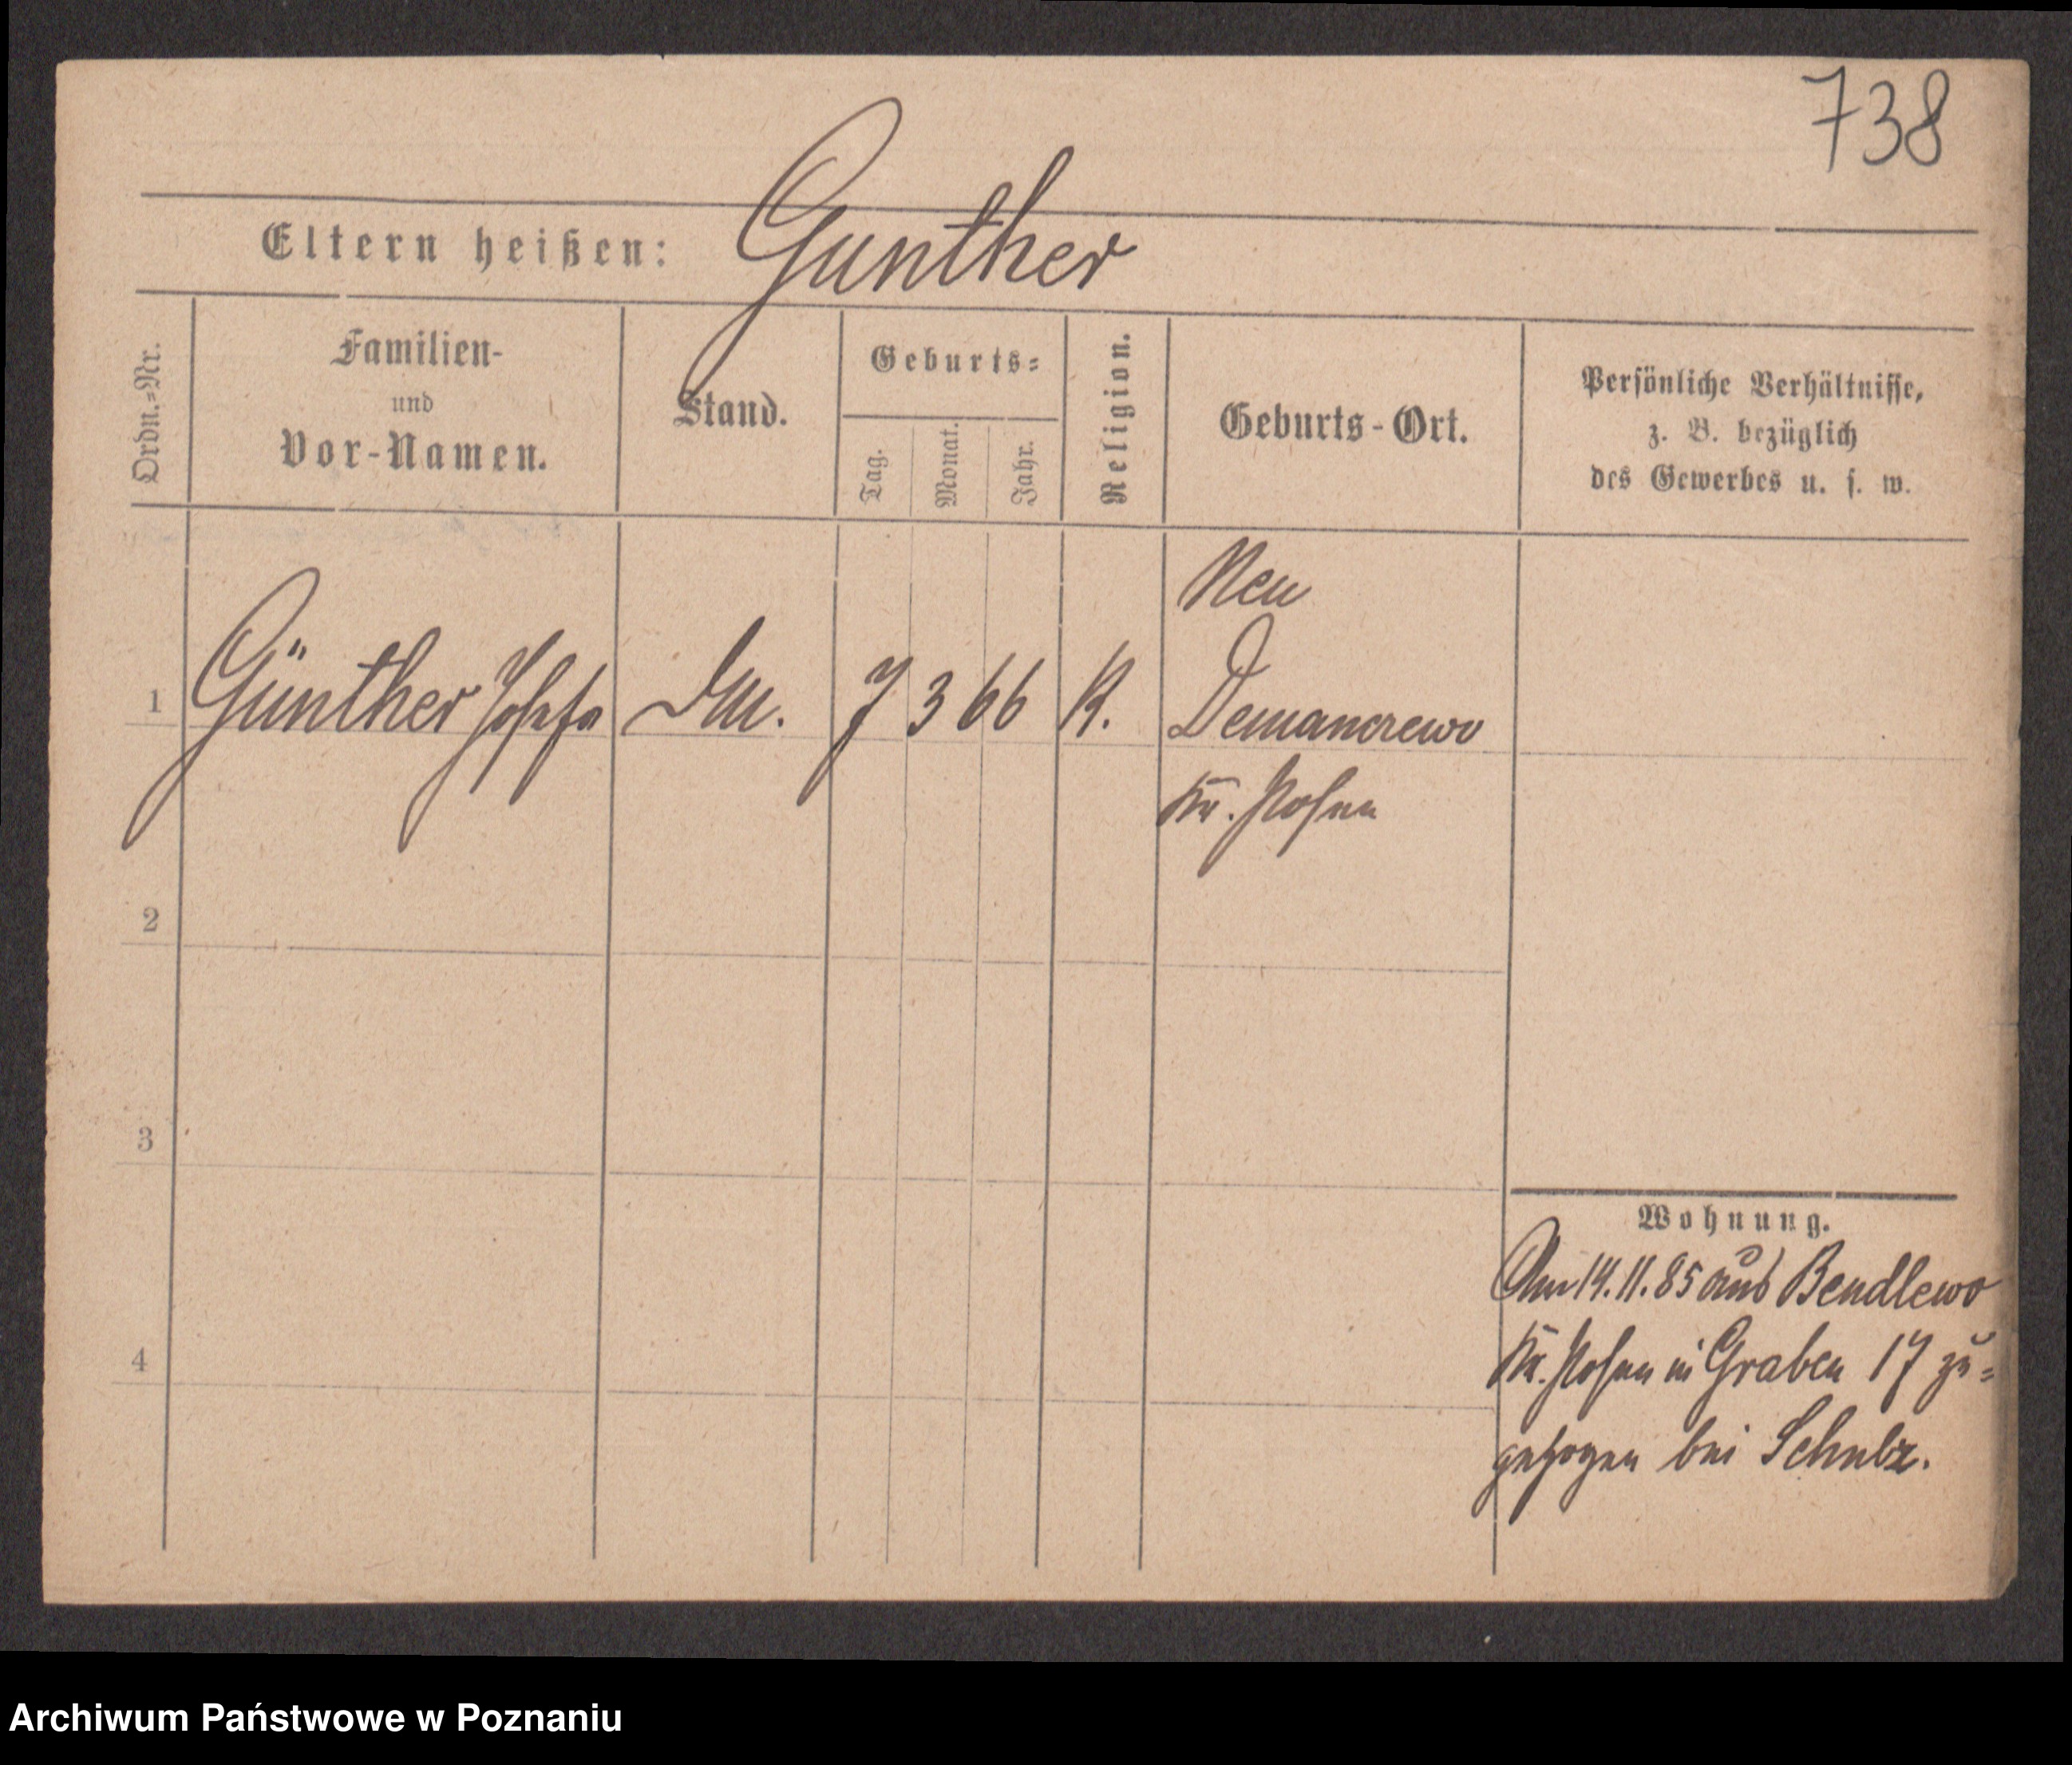 738
Eltern heißen: Gunther
Ordn.-Nr.
Familien-
und
Vor-Namen.
Stand.
Geburts-
Tag.
Monat.
Jahr.
Religion.
Geburts-Ort.
Persönliche Verhältnisse,
z. B. bezüglich
des Gewerbes u. s. w.
Neu
1 Günther Josefa 7 3 66 K. Demanczewo
Kr. Posen
2
3
4
Wohnung.
Am 14.11.85 aus Bendlewo
Kr. Posen in Graben 17 zu-
gezogen bei Schulz.
Archiwum Państwowe w Poznaniu